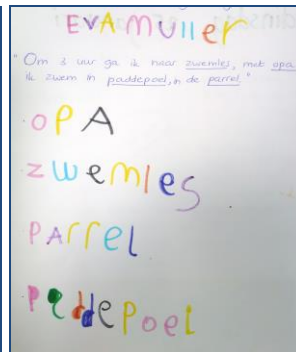 EVAMUller
"Om 3 uur ga ik naar zwemles, met opa
ik zwem in paddepoel, in de parrel."
OPA
zwemles
PArrel
Peddepoel